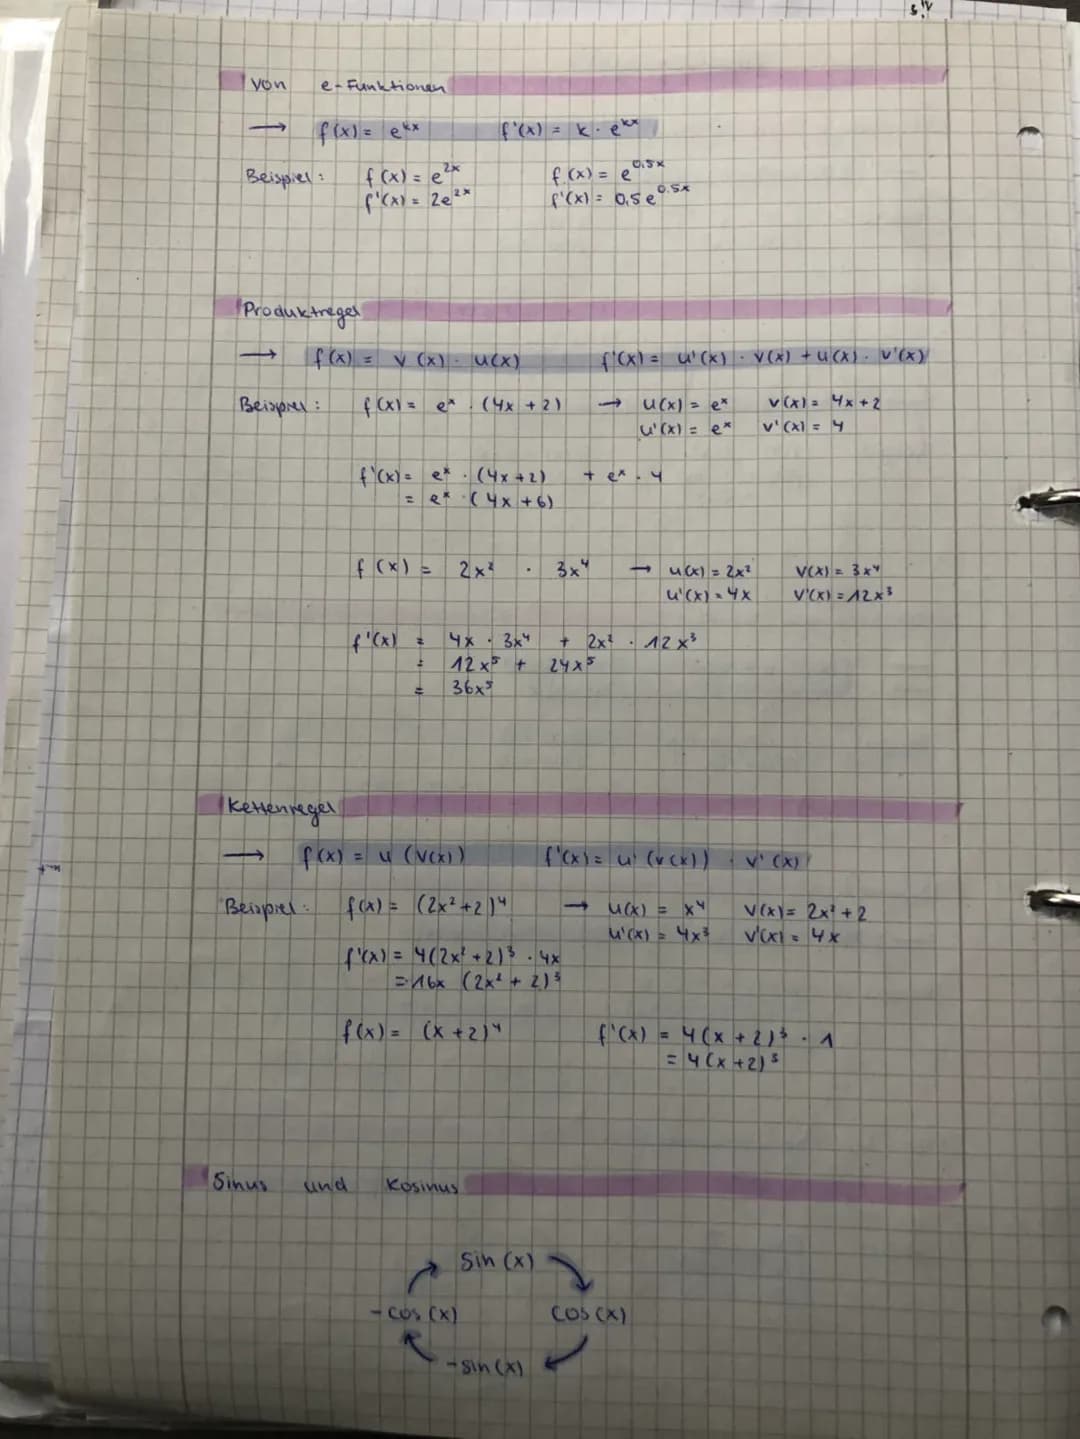 Von e-Funktionen
→ f(x) = e^kx f'(x) = k · e^kx
Beispiel: f(x) = e^2x f(x) = e^0,5x
f'(x) = 2e^2x f'(x) = 0,5e^0.5x
Produktregel
→ f(x) = v(x) · u(x) f'(x) = u'(x) · v(x) + u(x) · v'(x)
Beispiel: f(x) = e^x · (4x + 2) → u(x) = e^x v(x) = 4x + 2
u'(x) = e^x v'(x) = 4
f'(x) = e^x · (4x + 2) + e^x · 4
= e^x · (4x + 6)
f(x) = 2x² · 3x⁴ → u(x) = 2x² v(x) = 3x⁴
u'(x) = 4x v'(x) = 12x³
f'(x) = 4x · 3x⁴ + 2x² · 12x³
= 12x⁵ + 24x⁵
= 36x⁵
Kettenregel
→ f(x) = u(v(x)) f'(x) = u'(v(x)) · v'(x)
Beispiel: f(x) = (2x² + 2)⁴ → u(x) = x⁴ v(x) = 2x² + 2
u'(x) = 4x³ v'(x) = 4x
f'(x) = 4(2x² + 2)³ · 4x
= 16x (2x² + 2)³
f(x) = (x + 2)⁴ f'(x) = 4(x + 2)³ · 1
= 4(x + 2)³
Sinus und Kosinus
sin(x)
-cos(x) cos(x)
-sin(x)